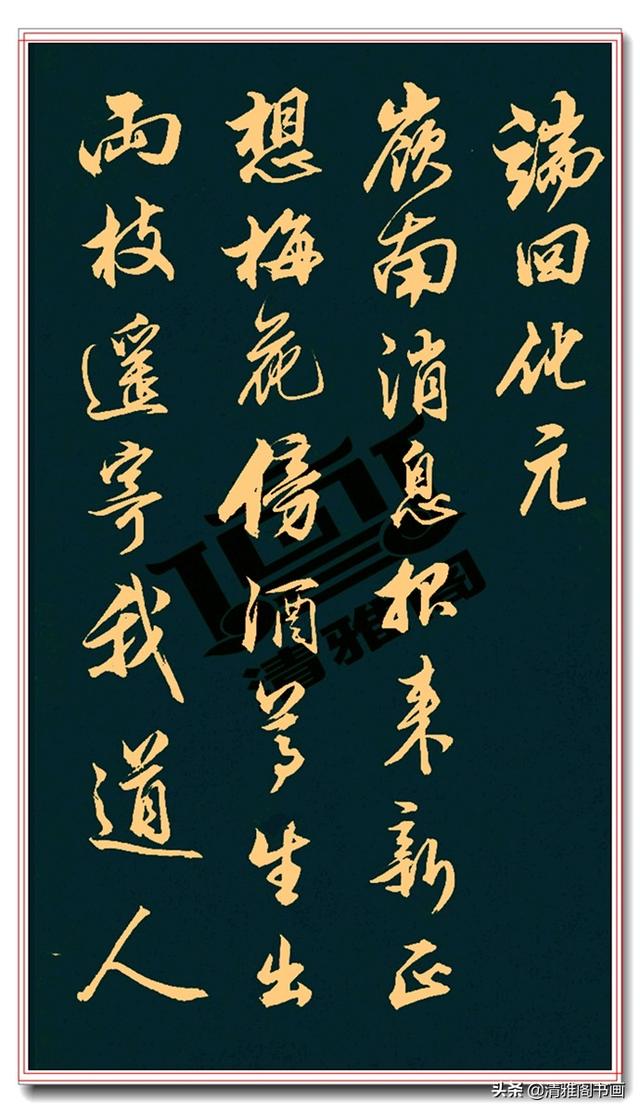 端回化元
嶺南消息報来新正
想梅花傍酒尊生出
兩枝遥寄我道人
清雅阁
头条 @清雅阁书画